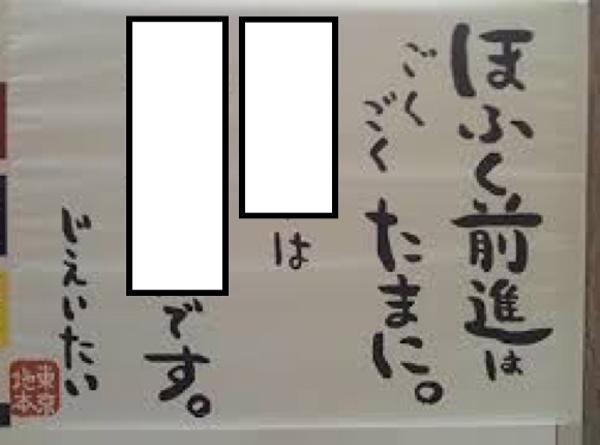 ほふく前進は
ごくごく
たまに。
は
です。
じえいたい
東京
地本